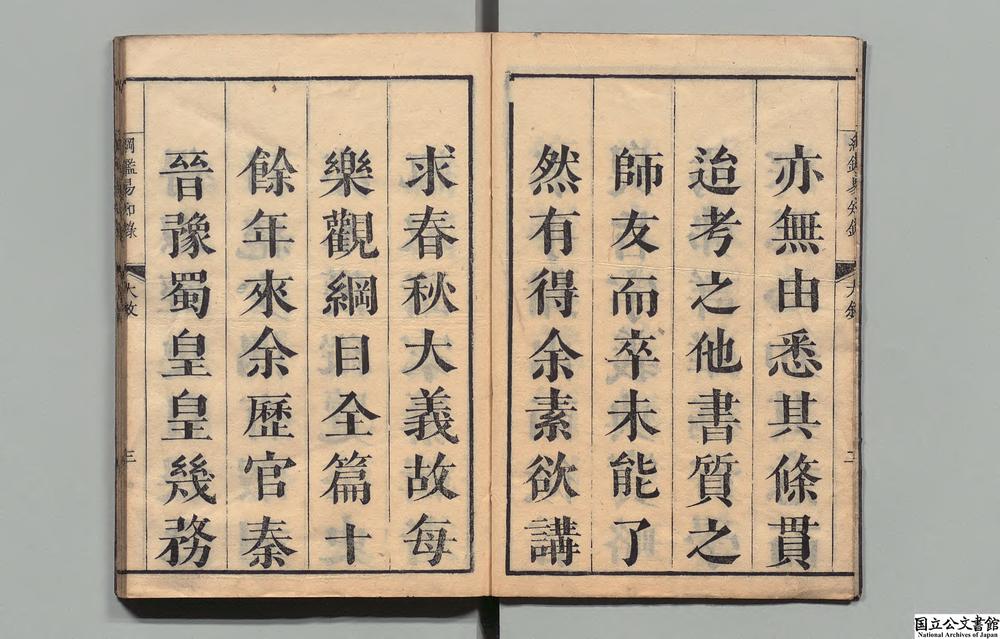 亦無由悉其條貫
迨考之他書質之
師友而卒未能了
然有得余素欲講
求春秋大義故每
樂觀綱目全篇十
餘年來余歷官秦
晉豫蜀皇皇幾務
綱鑑易知錄
三
二
国立公文書館
National Archives of Japan